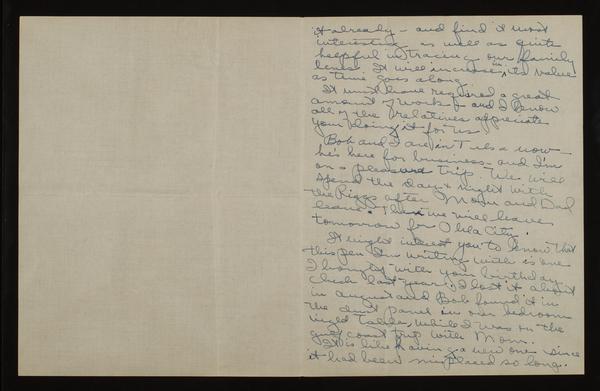 it already - and find it most
interesting as well as quite
helpful in tracing our family
lines. It will increase in its value
as time goes along.
It must have required a great
amount of work - and I know
all of the relatives appreciate
your doing it for us.
Bob and I are in Tulsa now -
he's here for business - and I'm
on a pleasure trip. We will
spend the day & night with
the Riggs after Mom and Dad
leave. Then we will leave
tomorrow for Okla City.
It might interest you to know that
this pen I'm writing with is one
I bought with your birthday
check last year. I lost it
in August and Bob found it in
the dust panel in our bedroom
night table, while I was on the
gulf coast trip with Mom.
It is like having a new one since
it had been misplaced so long.